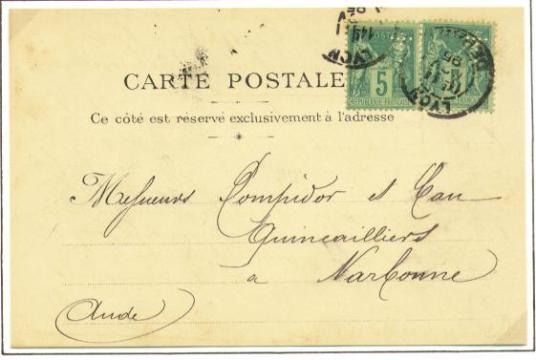 CARTE POSTALE
Ce côté est réservé exclusivement à l'adresse
5
REPUBLIQUE FRANÇAISE
LYON
LYON
Messieurs Compidor et Cau
Quincailliers
à Narbonne
(Aude)